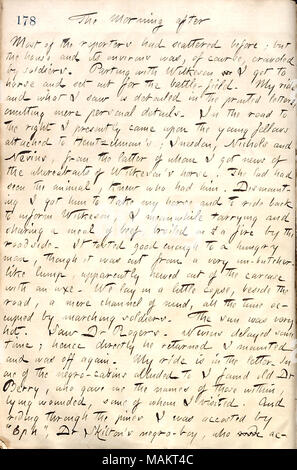 178
The Morning after
Most of the reporters had scattered before; but
the house and its environs was, of course, crowded
by soldiers. Parting with Wilkeson I got to
horse and set out for the battle-field. My ride
and what I saw is detailed in the printed letters
omitting mere personal details. In the road to
the right I presently came upon the young fellows
attached to Heintzelman's; Sweden, Nichols and
Nevins, from the latter of whom I got news of
the whereabouts of Wilkeson's horse! He had had
seen the animal, knew who had him. Dismount-
ing I got him to take my horse and ride back
to inform Wilkeson, I meanwhile tarrying and
sharing a meal of beef broiled a fire by the
roadside. It tasted good enough to a hungry
man, though it was cut from a very un-butcher-
like lump, apparently hewed out of the carcase
with an axe. We lay in a little copse, beside the
road, a mere channel of mud, all the time oc-
cupied by marching soldiers. The sun was very
hot. Saw Dr Rogers. Nevins delayed some
time; hence directly he returned I mounted
and was off again. My ride is in the letter. In
one of the negro-cabins alluded to I found old Dr
Berry, who gave me the names of those within,
lying wounded, some of whom I visited. And
riding through the pines I was accosted by
"Eph", Dr Skilton's negro-boy, who ac-
MAKT4C
alamy